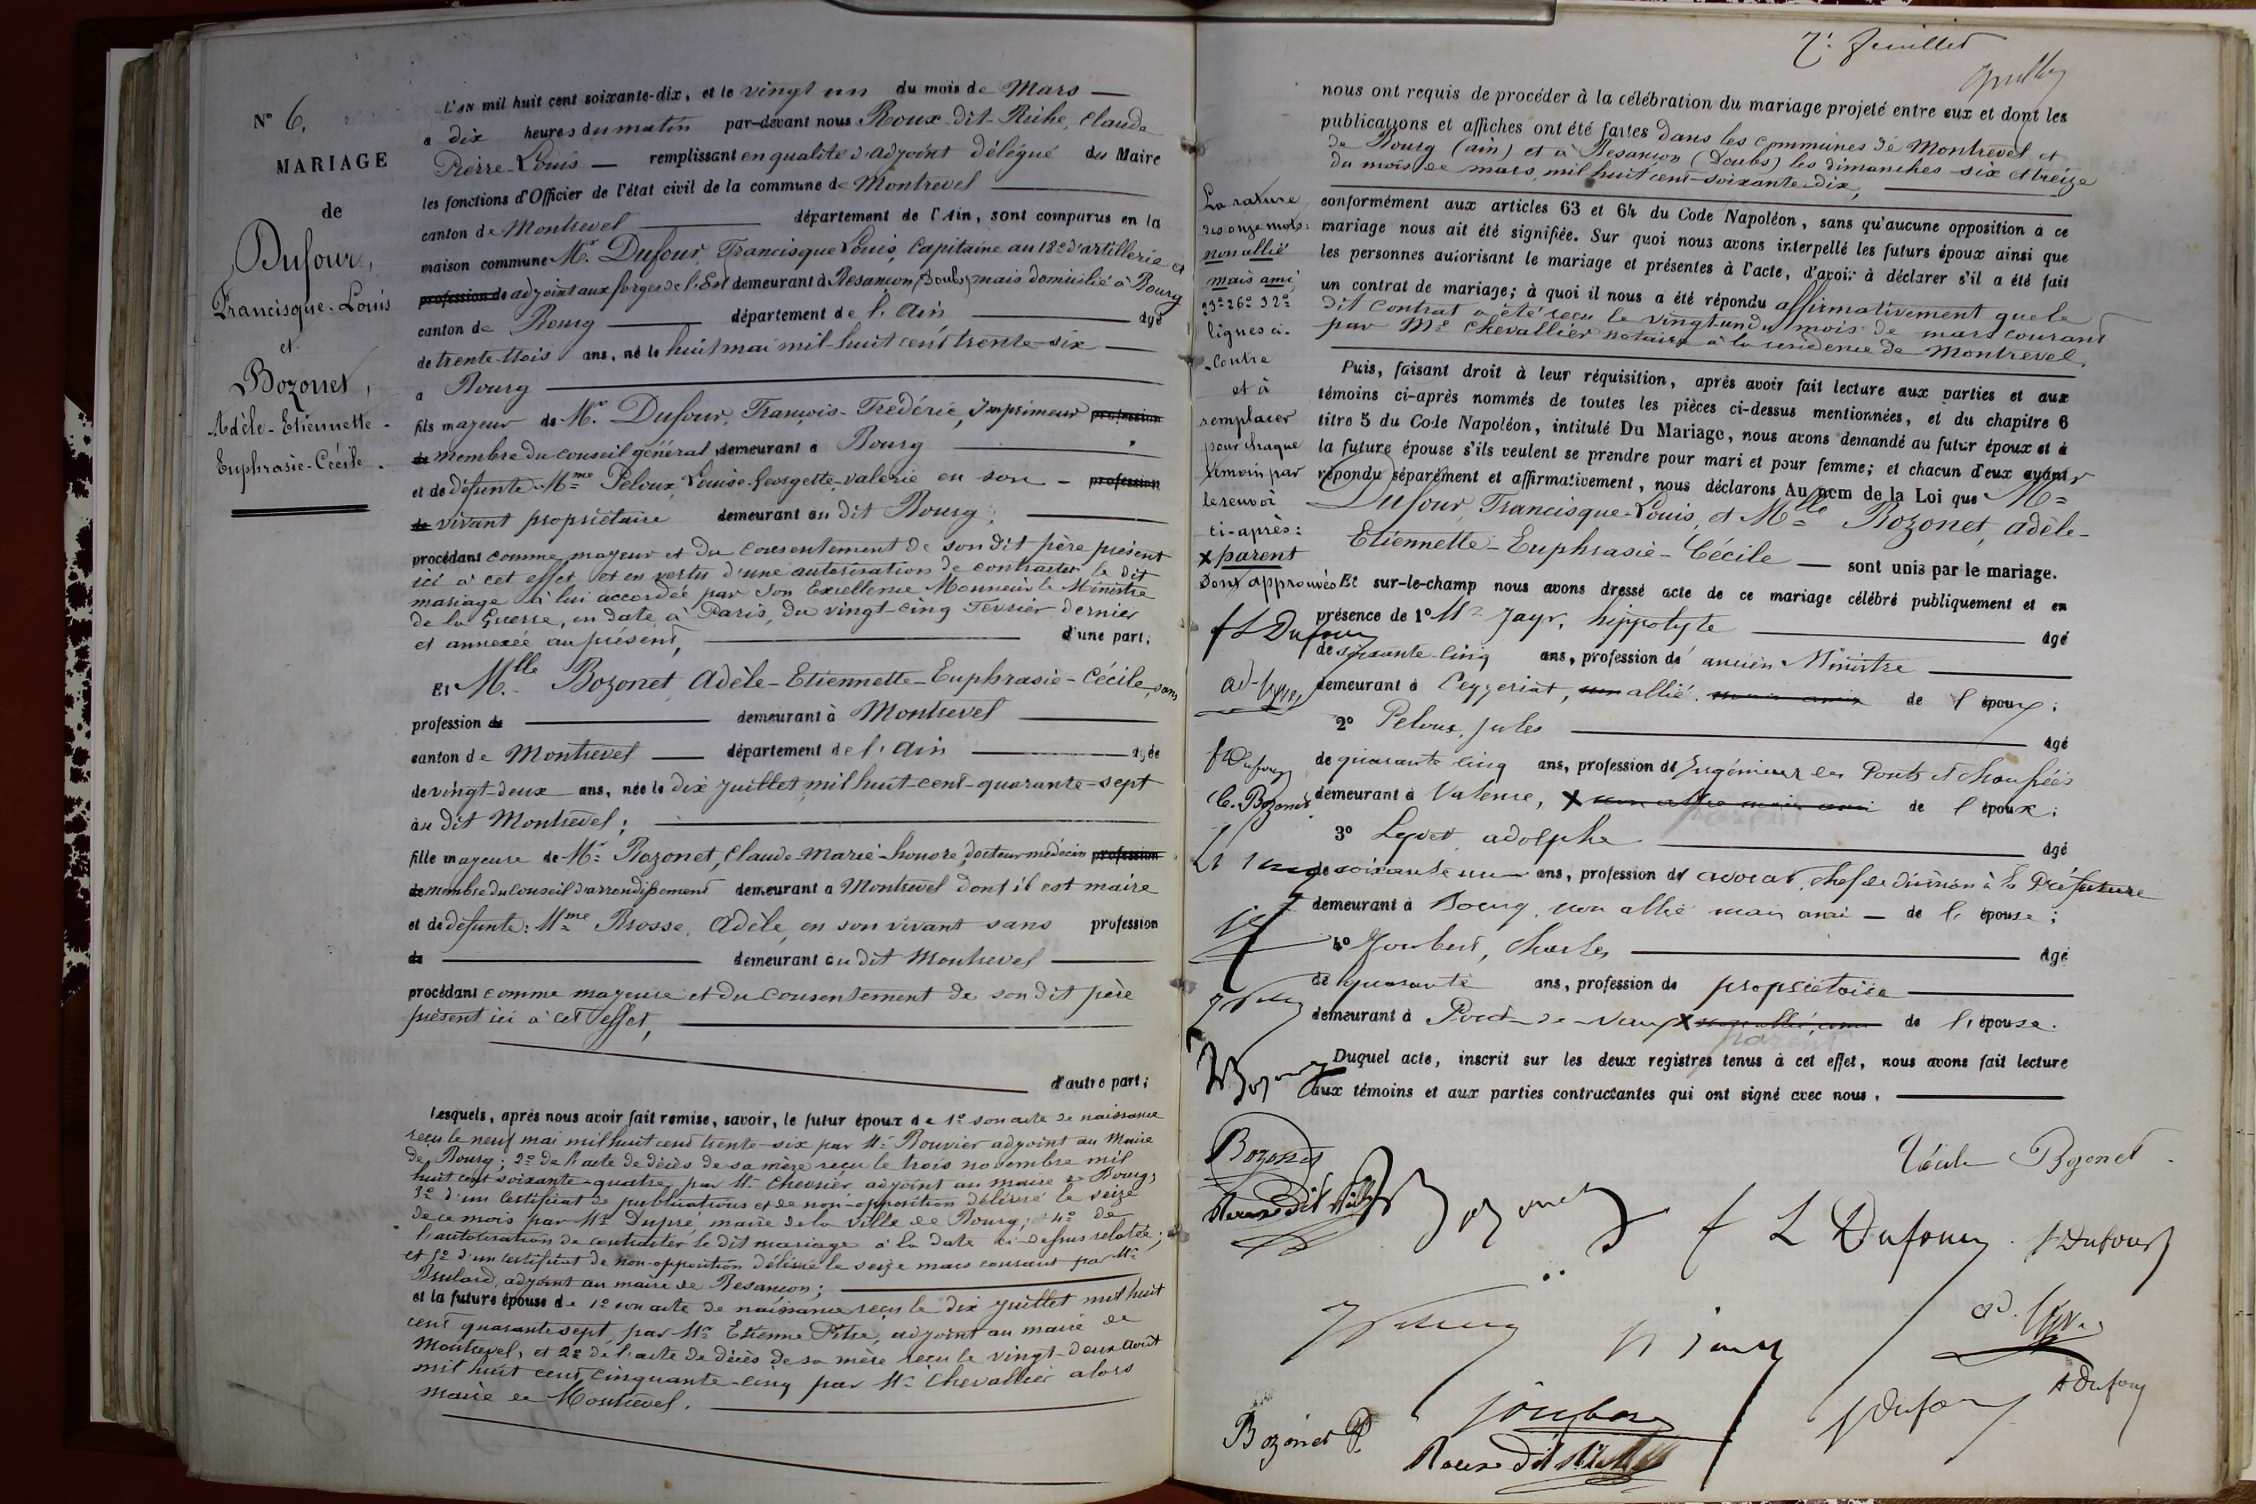 N° 6.
MARIAGE
de
Dufour,
Francisque-Louis
et
Bozonet,
Adèle-Etiennette-
Euphrasie-Cécile.
L'AN mil huit cent soixante-dix, et le vingt un du mois de Mars
a dix heures du matin par-devant nous Roux-dit-Riche, Claude
Pierre-Louis remplissant en qualité d'adjoint délégué du Maire
les fonctions d'Officier de l'état civil de la commune de Montrevel
canton de Montrevel département de l'Ain, sont comparus en la
maison commune Mr. Dufour, Francisque Louis, Capitaine au 18e d'artillerie et
profession de adjoint aux forges de l'Est demeurant à Besançon (Doubs) mais domicilié à Bourg
canton de Bourg département de l'Ain agé
de trente-trois ans, né le huit mai mil-huit cent trente-six
a Bourg
fils majeur de Mr. Dufour, François-Frédéric, Imprimeur profession
de membre du conseil général, demeurant a Bourg
et de défunte Mme Peloux, Louise-Georgette-Valérie en son profession
de vivant propriétaire demeurant au dit Bourg;
procédant comme majeur et du consentement de son dit père présent
ici à cet effet et en vertu d'une autorisation de contracter le dit
mariage à lui accordée par Son Excellence Monsieur le Ministre
de la Guerre, en date à Paris, du vingt-cinq Février dernier
et annexée au présent, d'une part;
Et Mlle Bozonet Adèle-Etiennette-Euphrasie-Cécile, sans
profession de demeurant à Montrevel
canton de Montrevel département de l'Ain agée
de vingt-deux ans, née le dix juillet mil huit-cent-quarante-sept
au dit Montrevel;
fille majeure de Mr. Bozonet, Claude-Marie-honoré, docteur médecin profession
de membre du Conseil d'arrondissement demeurant a Montrevel dont il est maire
et de défunte: Mme Brosse, Adèle, en son vivant sans profession
de demeurant au dit Montrevel
procédant comme majeure et du consentement de son dit père
présent ici à cet effet,
d'autre part;
Lesquels, après nous avoir fait remise, savoir, le futur époux de 1° son acte de naissance
reçu le neuf mai mil huit cent trente-six par Mr. Bouvier adjoint au Maire
de Bourg; 2° de l'acte de décès de sa mère reçu le trois novembre mil
huit cent soixante-quatre, par Mr Chevrier adjoint au maire de Bourg;
3° d'un certificat de publications et de non-opposition délivré le seize
de ce mois par Mr Dupré, maire de la ville de Bourg; 4° de
l'autorisation de contracter le dit mariage à la date ci-dessus relatée;
et 5° d'un certificat de non-opposition délivré le seize mars courant par Mr
Brulard, adjoint au maire de Besançon;
et la future épouse de 1° son acte de naissance reçu le dix juillet mil huit
cent quarante sept, par Mr Etienne Pitre, adjoint au maire de
Montrevel, et 2° de l'acte de décès de sa mère reçu le vingt-deux août
mil huit cent cinquante-cinq par Mr Chevallier alors
maire de Montrevel.
7e feuillet
nous ont requis de procéder à la célébration du mariage projeté entre eux et dont les
publications et affiches ont été faites dans les communes de Montrevel et
de Bourg (ain) et à Besançon (Doubs) les dimanches six et treize
du mois de mars mil huit cent-soixante-dix,
conformément aux articles 63 et 64 du Code Napoléon, sans qu'aucune opposition à ce
mariage nous ait été signifiée. Sur quoi nous avons interpellé les futurs époux ainsi que
les personnes autorisant le mariage et présentes à l'acte, d'avoir à déclarer s'il a été fait
un contrat de mariage; à quoi il nous a été répondu affirmativement que le
dit contrat a été reçu le vingt-un du mois de mars courant
par Me Chevallier notaire à la résidence de Montrevel.
Puis, faisant droit à leur réquisition, après avoir fait lecture aux parties et aux
témoins ci-après nommés de toutes les pièces ci-dessus mentionnées, et du chapitre 6
titre 5 du Code Napoléon, intitulé Du Mariage, nous avons demandé au futur époux et à
la future épouse s'ils veulent se prendre pour mari et pour femme; et chacun d'eux ayant
répondu séparément et affirmativement, nous déclarons Au nom de la Loi que Mr
Dufour, Francisque-Louis, et Mlle Bozonet, adèle-
Etiennette-Euphrasie-Cécile sont unis par le mariage.
Et sur-le-champ nous avons dressé acte de ce mariage célébré publiquement et en
présence de 1° Mr Jayr, hippolyte agé
de soixante-cinq ans, profession de ancien Ministre
demeurant à Ceyzeriat, non allié mais ami de l'époux;
2° Peloux, Jules agé
de quarante cinq ans, profession de Ingénieur des Ponts et chaussées
demeurant à Valence, X non allié mais ami de l'époux;
3° Leyvet adolphe agé
de soixante un ans, profession de avocat, chef de division à la Préfecture
demeurant à Bourg, non allié mais ami de l'épouse;
4° Joubert, Charles agé
de quarante ans, profession de propriétaire
demeurant à Pont-de-Vaux X non allié, ami de l'épouse.
Duquel acte, inscrit sur les deux registres tenus à cet effet, nous avons fait lecture
aux témoins et aux parties contractantes qui ont signé avec nous.
La rature
des onze mots:
non allié
mais ami
23e 26e 32e
lignes ci-
contre
et à
remplacer
pour chaque
témoin par
le renvoi
ci-après:
X parent
Sont approuvés
f L Dufour
F Dufour
C. Bozonet
Bozonet
Bozonet
Roux Dit Riche
Cécile Bozonet
Bozonet
f L Dufour
F Dufour
H Jayr
A Dufour
F Dufour
Joubert
Bozonet P.
Roux Dit Riche